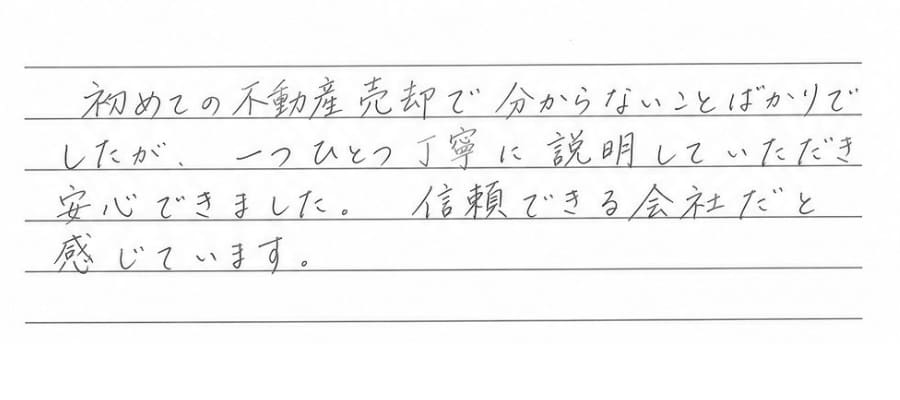 初めての不動産売却で分からないことばかりで
したが、一つひとつ丁寧に説明していただき
安心できました。 信頼できる会社だと
感じています。